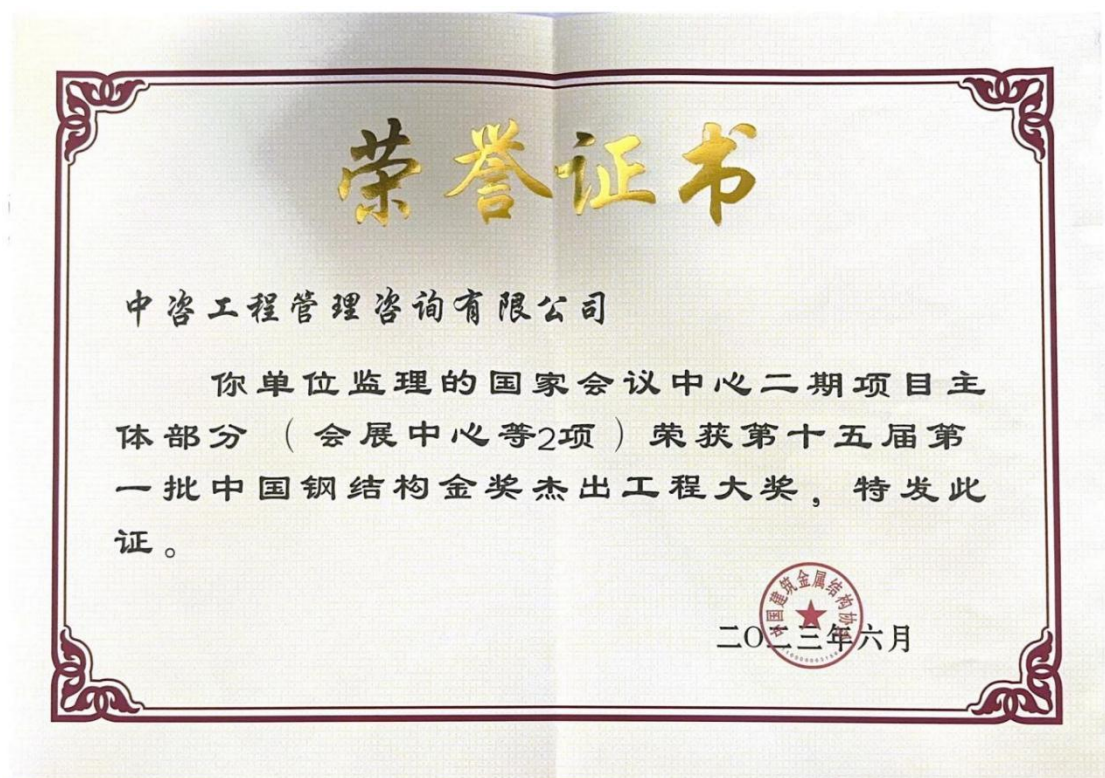 荣誉证书
中咨工程管理咨询有限公司
你单位监理的国家会议中心二期项目主
体部分（会展中心等2项）荣获第十五届第
一批中国钢结构金奖杰出工程大奖，特发此
证。
中国建筑金属结构协会
二〇二三年六月